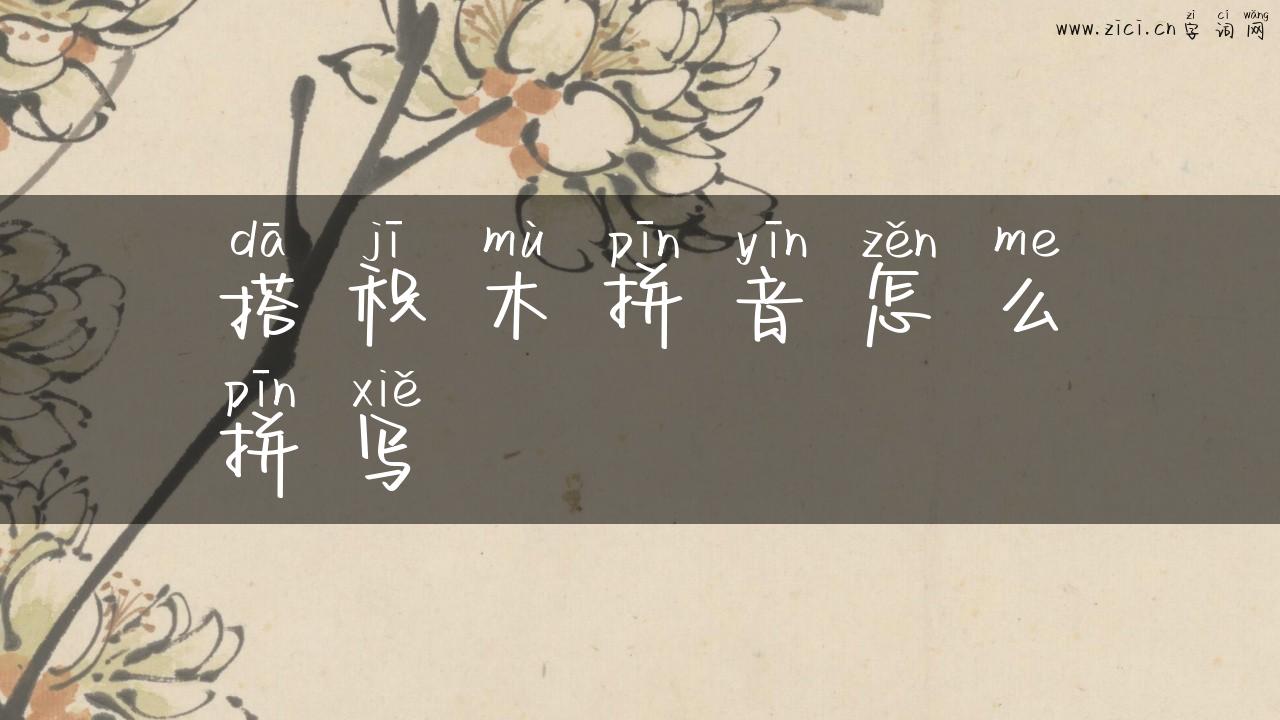 zì cí wǎng
www.zici.cn 字词网
dā jī mù pīn yīn zěn me
搭积木拼音怎么
pīn xiě
拼写